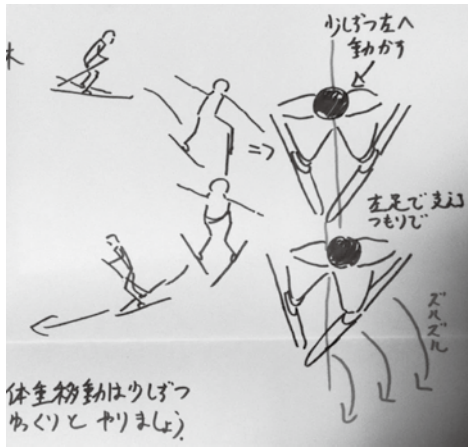 少しずつ左へ
動かす
左足で支える
つもりで
ズルズル
体重移動は少しずつ
ゆっくりと やりましょう。